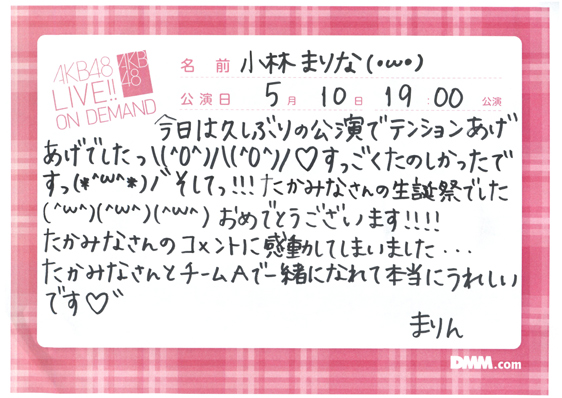 AKB48
LIVE!!
ON DEMAND
AKB
48
名前 小林まりな(・ω・)
公演日 5月 10日 19:00 公演
今日は久しぶりの公演でテンションあげ
あげでしたっ\(^O^)/\(^O^)/♡すっごくたのしかったで
すっ(*^ω^*)ノ゛そしてっ!!!たかみなさんの生誕祭でした
(^ω^)(^ω^)(^ω^) おめでとうございます!!!!
たかみなさんのコメントに感動してしまいました・・・
たかみなさんとチームAで一緒になれて本当にうれしい
です♡゛
まりん
DMM.com